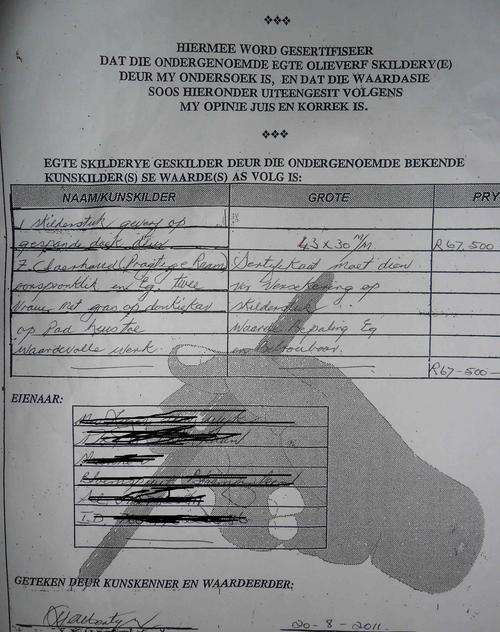 HIERMEE WORD GESERTIFISEER
DAT DIE ONDERGENOEMDE EGTE OLIEVERF SKILDERY(E)
DEUR MY ONDERSOEK IS, EN DAT DIE WAARDASIE
SOOS HIERONDER UITEENGESIT VOLGENS
MY OPINIE JUIS EN KORREK IS.
EGTE SKILDERYE GESKILDER DEUR DIE ONDERGENOEMDE BEKENDE
KUNSKILDER(S) SE WAARDE(S) AS VOLG IS:
NAAM/KUNSKILDER GROTE PRY
1 skilderstuk gewerf op
gespande doek deur 43 x 30 m/m R67,500
(Pragtige Raam) Sertifikaat moet dien
oorspronklik en Eg. twee vir Versekering op
Vrouens met gras op donkiekar skilderstuk.
op Pad huis toe Waarde bepaling Eg
waardevolle werk. en betroubaar.
R67-500-
EIENAAR:
GETEKEN DEUR KUNSKENNER EN WAARDEERDER:
20-8-2011